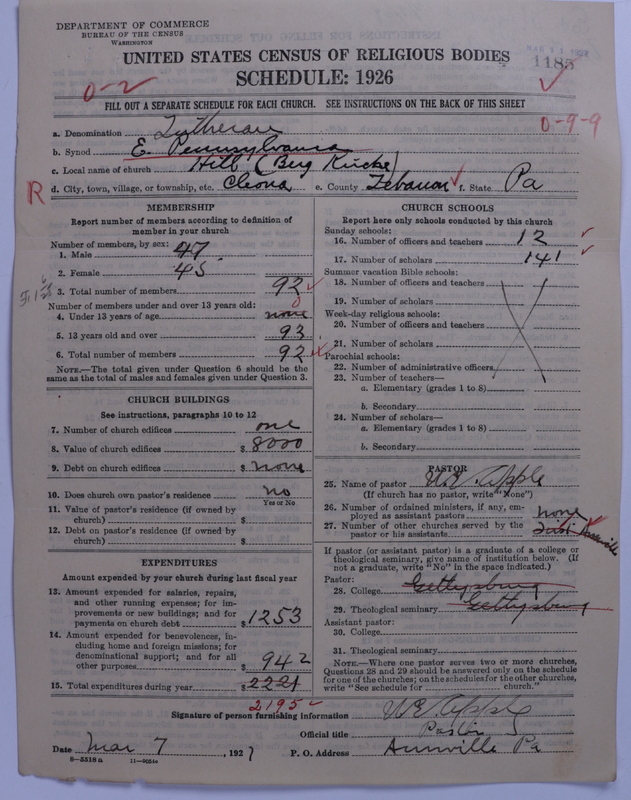 DEPARTMENT OF COMMERCE
BUREAU OF THE CENSUS
WASHINGTON
UNITED STATES CENSUS OF RELIGIOUS BODIES
1185
SCHEDULE: 1926
0-2
FILL OUT A SEPARATE SCHEDULE FOR EACH CHURCH. SEE INSTRUCTIONS ON THE BACK OF THIS SHEET
0-9-9
a. Denomination Lutheran
b. Synod E. Pennsylvania
c. Local name of church Hill (Berg Kirche)
R
d. City, town, village, or township, etc. Cleona e. County Lebanon f. State Pa
MEMBERSHIP
Report number of members according to definition of
member in your church
Number of members, by sex:
1. Male 47
2. Female 45
3. Total number of members 92
Number of members under and over 13 years old:
0
4. Under 13 years of age none
5. 13 years old and over 93
6. Total number of members 92
NOTE.—The total given under Question 6 should be
same as the total of males and females given under Question 3.
CHURCH BUILDINGS
See instructions, paragraphs 10 to 12
7. Number of church edifices one
8. Value of church edifices $ 8000
9. Debt on church edifices $ none
10. Does church own pastor's residence no
Yes or No
11. Value of pastor's residence (if owned by
church) $
12. Debt on pastor's residence (if owned by
church) $
EXPENDITURES
Amount expended by your church during last fiscal year
13. Amount expended for salaries, repairs,
and other running expenses; for im-
provements or new buildings; and for
payments on church debt $ 1253
14. Amount expended for benevolences, in-
cluding home and foreign missions; for
denominational support; and for all
other purposes 942
15. Total expenditures during year $ 2221
2195
CHURCH SCHOOLS
Report here only schools conducted by this church
Sunday schools:
16. Number of officers and teachers 12
17. Number of scholars 141
Summer vacation Bible schools:
18. Number of officers and teachers
19. Number of scholars
Week-day religious schools:
20. Number of officers and teachers
21. Number of scholars
Parochial schools:
22. Number of administrative officers
23. Number of teachers—
a. Elementary (grades 1 to 8)
b. Secondary
24. Number of scholars—
a. Elementary (grades 1 to 8)
b. Secondary
PASTOR
25. Name of pastor W E Apple
(If church has no pastor, write "None")
26. Number of ordained ministers, if any, em-
ployed as assistant pastors none
27. Number of other churches served by the
pastor or his assistants Annville
If pastor (or assistant pastor) is a graduate of a college or
theological seminary, give name of institution below. (If
not a graduate, write "No" in the space indicated.)
Pastor:
28. College Gettysburg
29. Theological seminary Gettysburg
Assistant pastor:
30. College
31. Theological seminary
NOTE.—Where one pastor serves two or more churches,
Questions 28 and 29 should be answered only on the schedule
for one of the churches; on the schedules for the other churches,
write "See schedule for church."
Signature of person furnishing information W E Apple
Official title Pastor
Date Mar 7, 1927 P. O. Address Annville Pa
8-5518a 11-9554